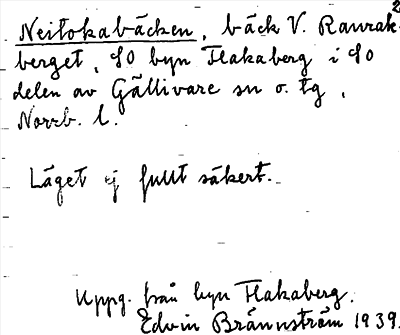 2
Neitokabäcken, bäck V. Raurak-
berget, SO byn Flakaberg i SO
delen av Gällivare sn o. tg,
Norrb. l.
Läget ej fullt säkert.
Uppg. från byn Flakaberg.
Edvin Brännström 1939.